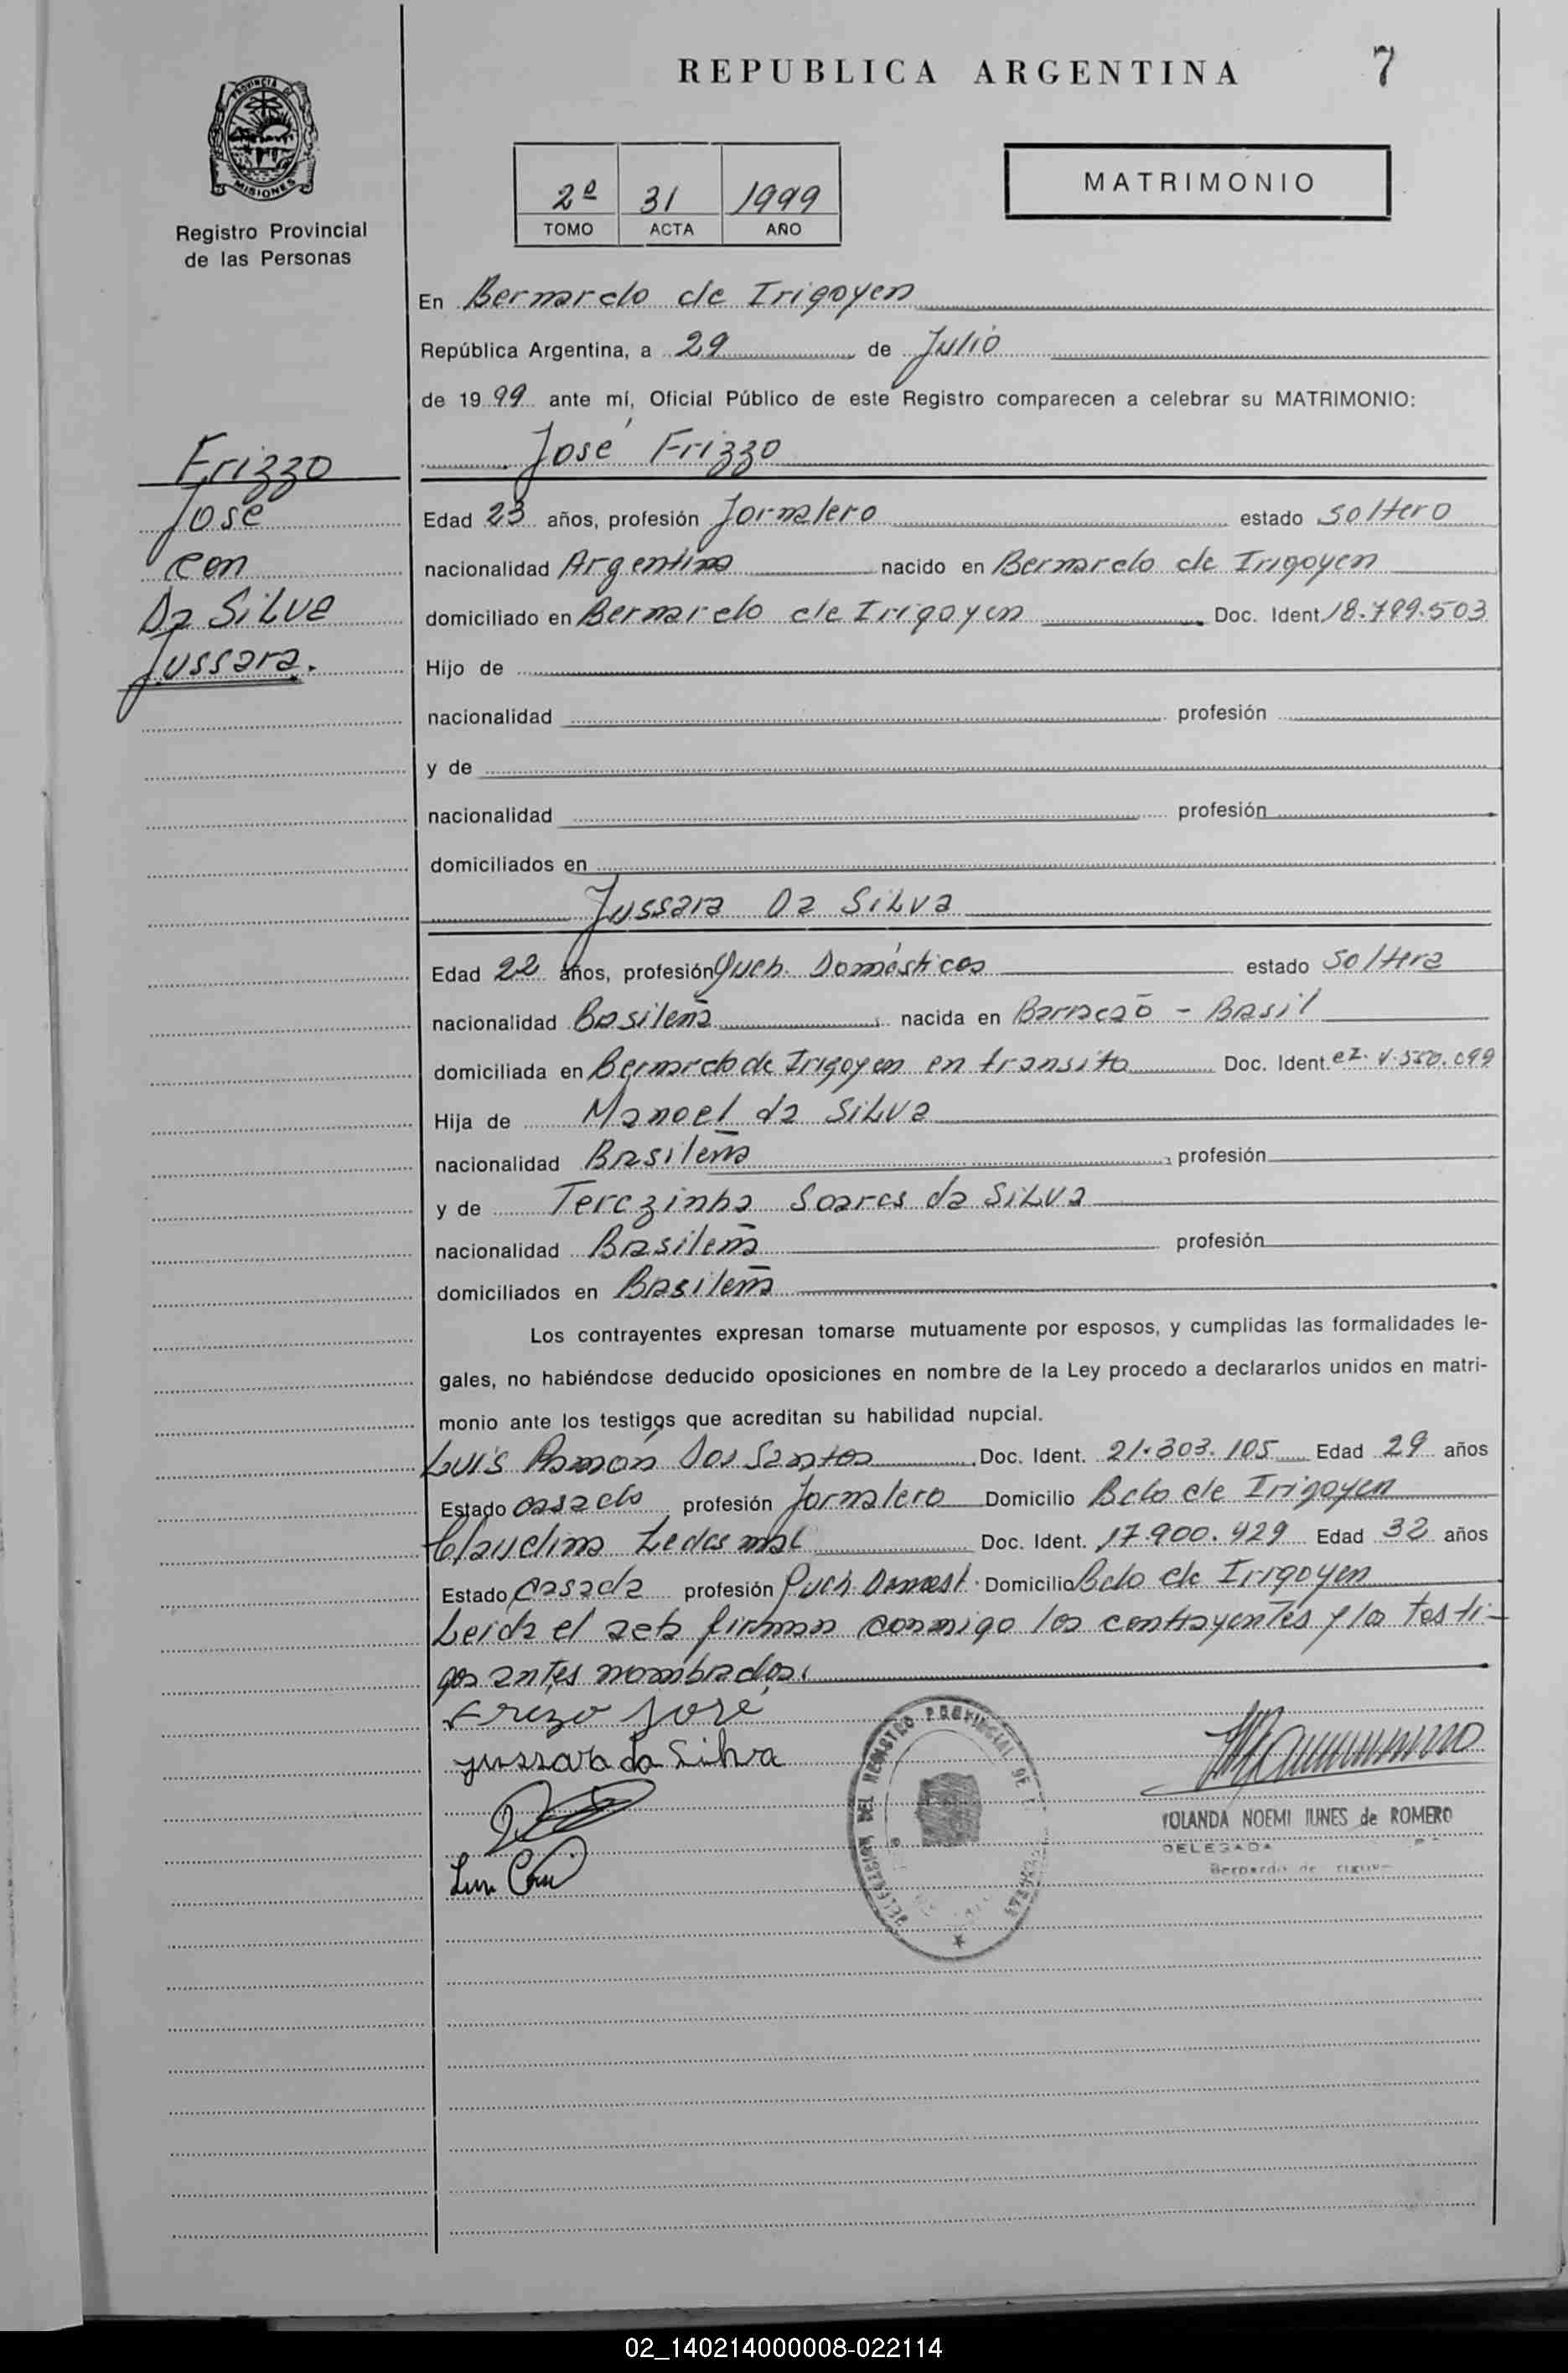 REPUBLICA ARGENTINA
7
PROVINCIA DE
MISIONES
Registro Provincial
de las Personas
2º 31 1999
TOMO ACTA AÑO
MATRIMONIO
En Bernardo de Irigoyen
República Argentina, a 29 de Julio
de 1999 ante mí, Oficial Público de este Registro comparecen a celebrar su MATRIMONIO:
Frizzo
José
con
Da Silva
Jussara.
José Frizzo
Edad 23 años, profesión Jornalero estado soltero
nacionalidad Argentina nacido en Bernardo de Irigoyen
domiciliado en Bernardo de Irigoyen Doc. Ident. 18.799.503
Hijo de
nacionalidad profesión
y de
nacionalidad profesión
domiciliados en
Jussara Da Silva
Edad 22 años, profesión Queh. Domésticos estado soltera
nacionalidad Brasileña nacida en Barracaõ - Brasil
domiciliada en Bernardo de Irigoyen en transito Doc. Ident. V.550.099
Hija de Manoel da Silva
nacionalidad Brasileña profesión
y de Terezinha Soares da Silva
nacionalidad Brasileña profesión
domiciliados en Brasileña
Los contrayentes expresan tomarse mutuamente por esposos, y cumplidas las formalidades le-
gales, no habiéndose deducido oposiciones en nombre de la Ley procedo a declararlos unidos en matri-
monio ante los testigos que acreditan su habilidad nupcial.
Luis Ramón Dos Santos Doc. Ident. 21.303.105 Edad 29 años
Estado casado profesión Jornalero Domicilio Bdo de Irigoyen
Claudina Ledesma Doc. Ident. 17.900.429 Edad 32 años
Estado casada profesión Queh. Domest. Domicilio Bdo de Irigoyen
Leida el acta firman conmigo los contrayentes y los testi-
gos antes nombrados.
Frizo José
jussara da Silva
DELEGACION DEL REGISTRO PROVINCIAL DE
YOLANDA NOEMI IUNES de ROMERO
DELEGADA
Bernardo de
02_140214000008-022114